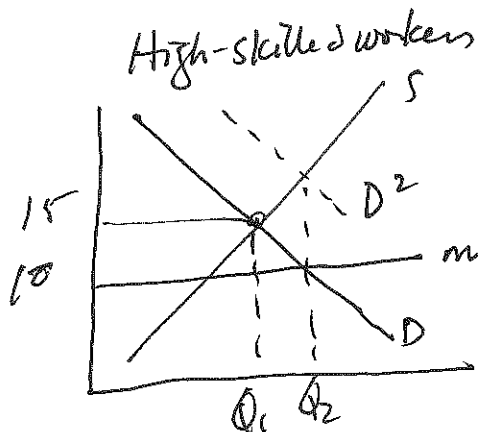 High-skilled workers
S
D²
15
10
m
D
Q₁ Q₂